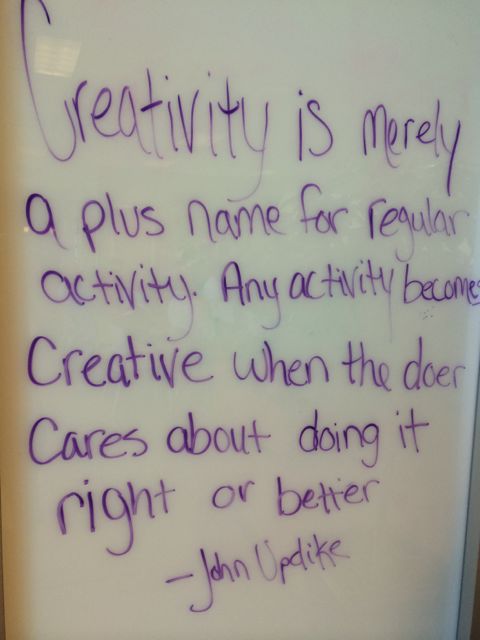 Creativity is merely
a plus name for regular
activity. Any activity becomes
Creative when the doer
Cares about doing it
right or better
- John Updike